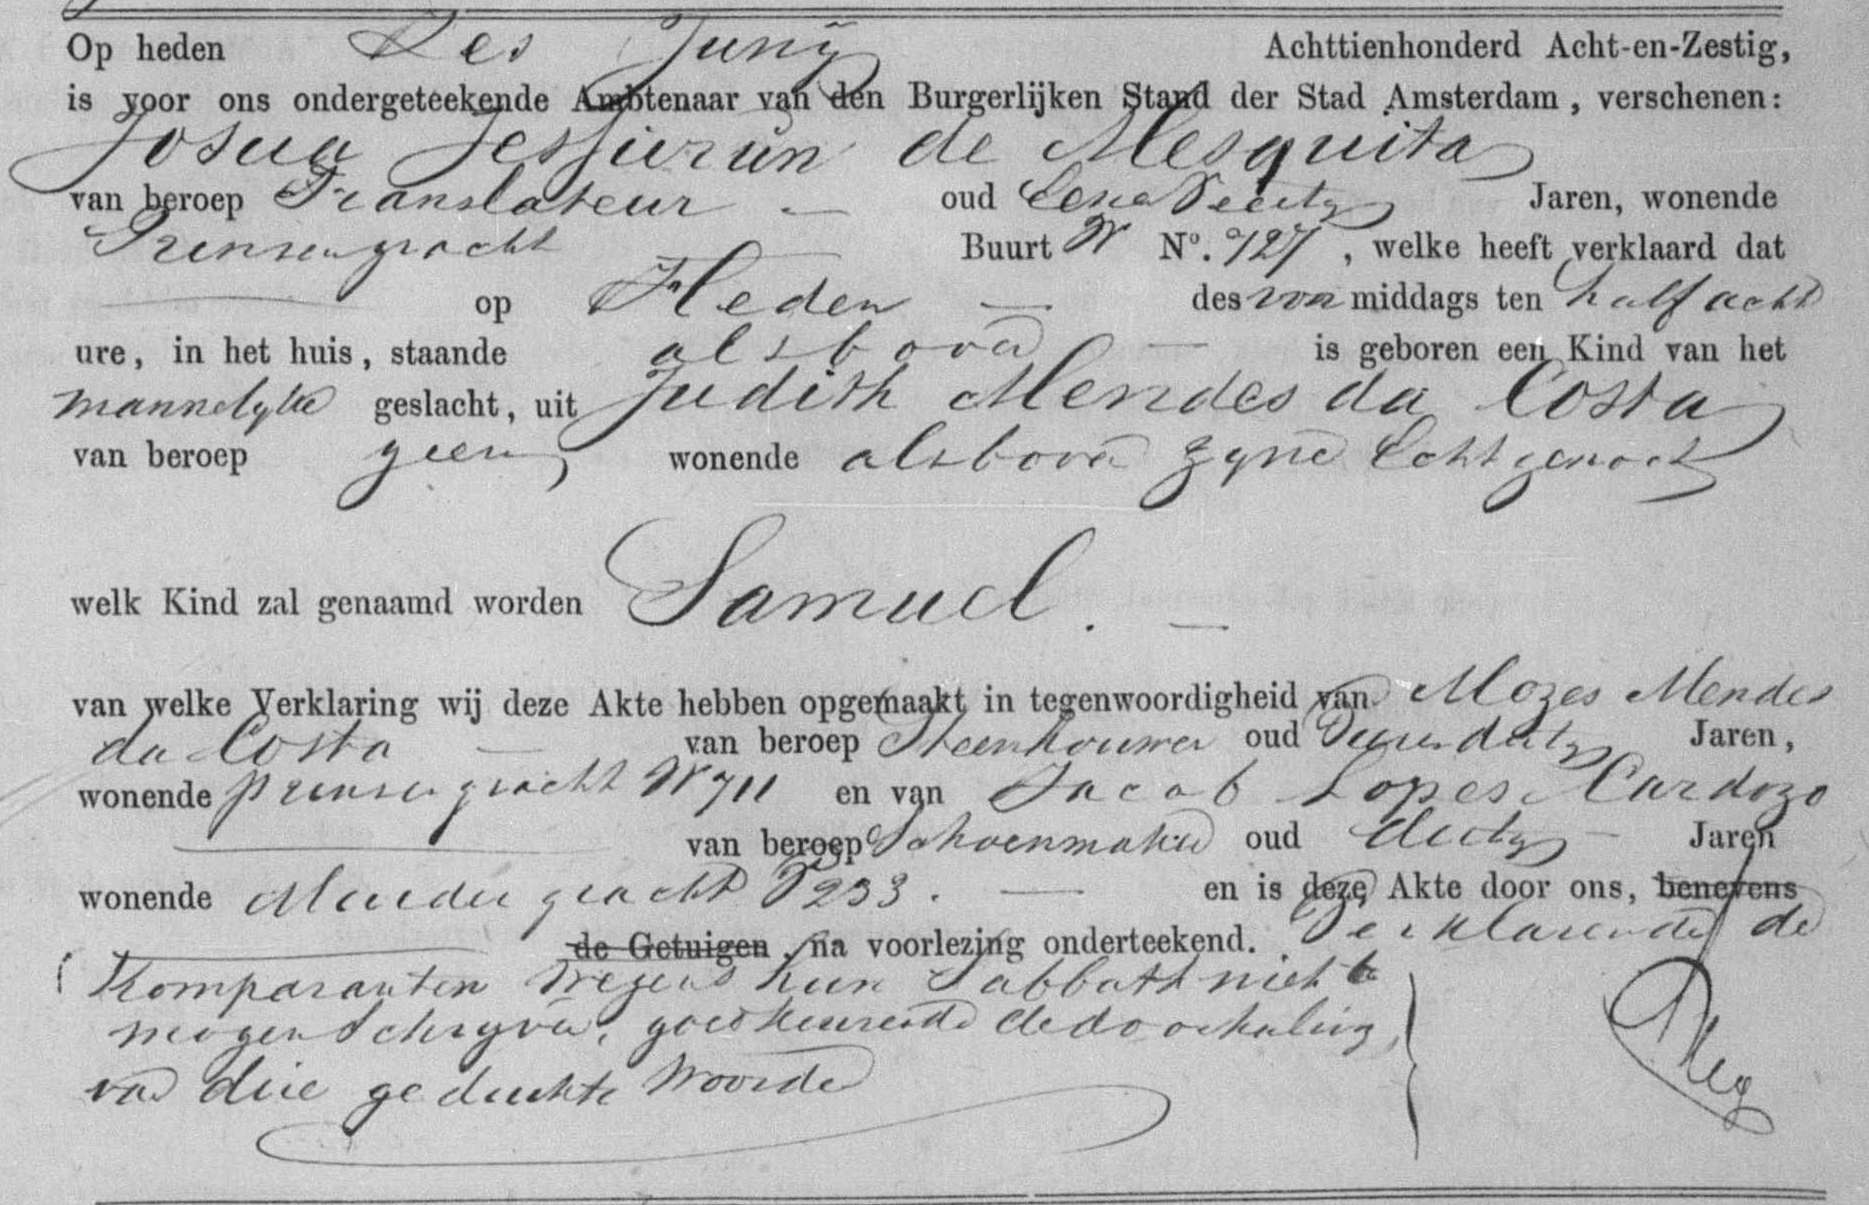 Op heden Zes Junij Achttienhonderd Acht-en-Zestig,
is voor ons ondergeteekende Ambtenaar van den Burgerlijken Stand der Stad Amsterdam, verschenen:
Josua Jessurun de Mesquita
van beroep Translateur — oud Eenen Veertig Jaren, wonende
Prinsengracht Buurt W No. 727, welke heeft verklaard dat
— op Heden — des voormiddags ten half acht
ure, in het huis, staande alsboven — is geboren een Kind van het
mannelyke geslacht, uit Judith Mendes da Costa
van beroep geen, wonende alsboven zyne Echtgenoot
welk Kind zal genaamd worden Samuel. —
van welke Verklaring wij deze Akte hebben opgemaakt in tegenwoordigheid van Mozes Mendes
da Costa — van beroep Steenhouwer oud Jaren,
wonende prinsengracht W 711 en van Jacob Lopes Cardozo
van beroep Schoenmaker oud dertig — Jaren
wonende Muidergracht 233. — en is deze Akte door ons, benevens
de Getuigen, na voorlezing onderteekend. Verklarende de
Komparanten wegens hun Sabbath niet te
mogen Schryven, goedkeurende de doorhaling
van drie gedrukte Woorden